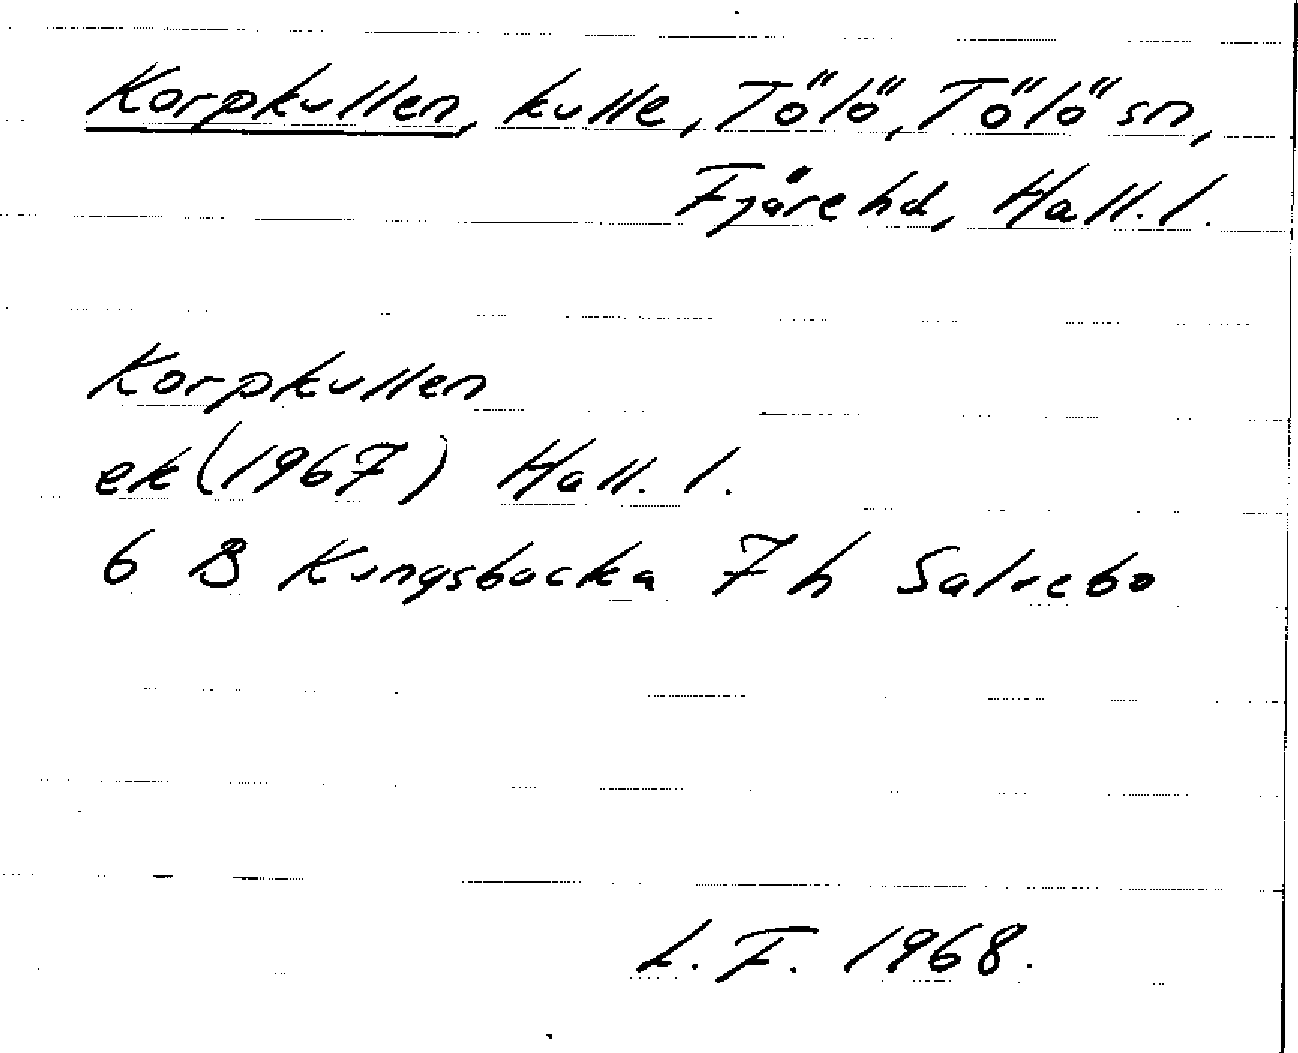 Korpkullen, kulle, Tölö, Tölö sn,
Fjäre hd, Hall. l.
Korpkullen
ek (1967) Hall. l.
6 B Kungsbacka 7 h Salvebo
L. F. 1968.